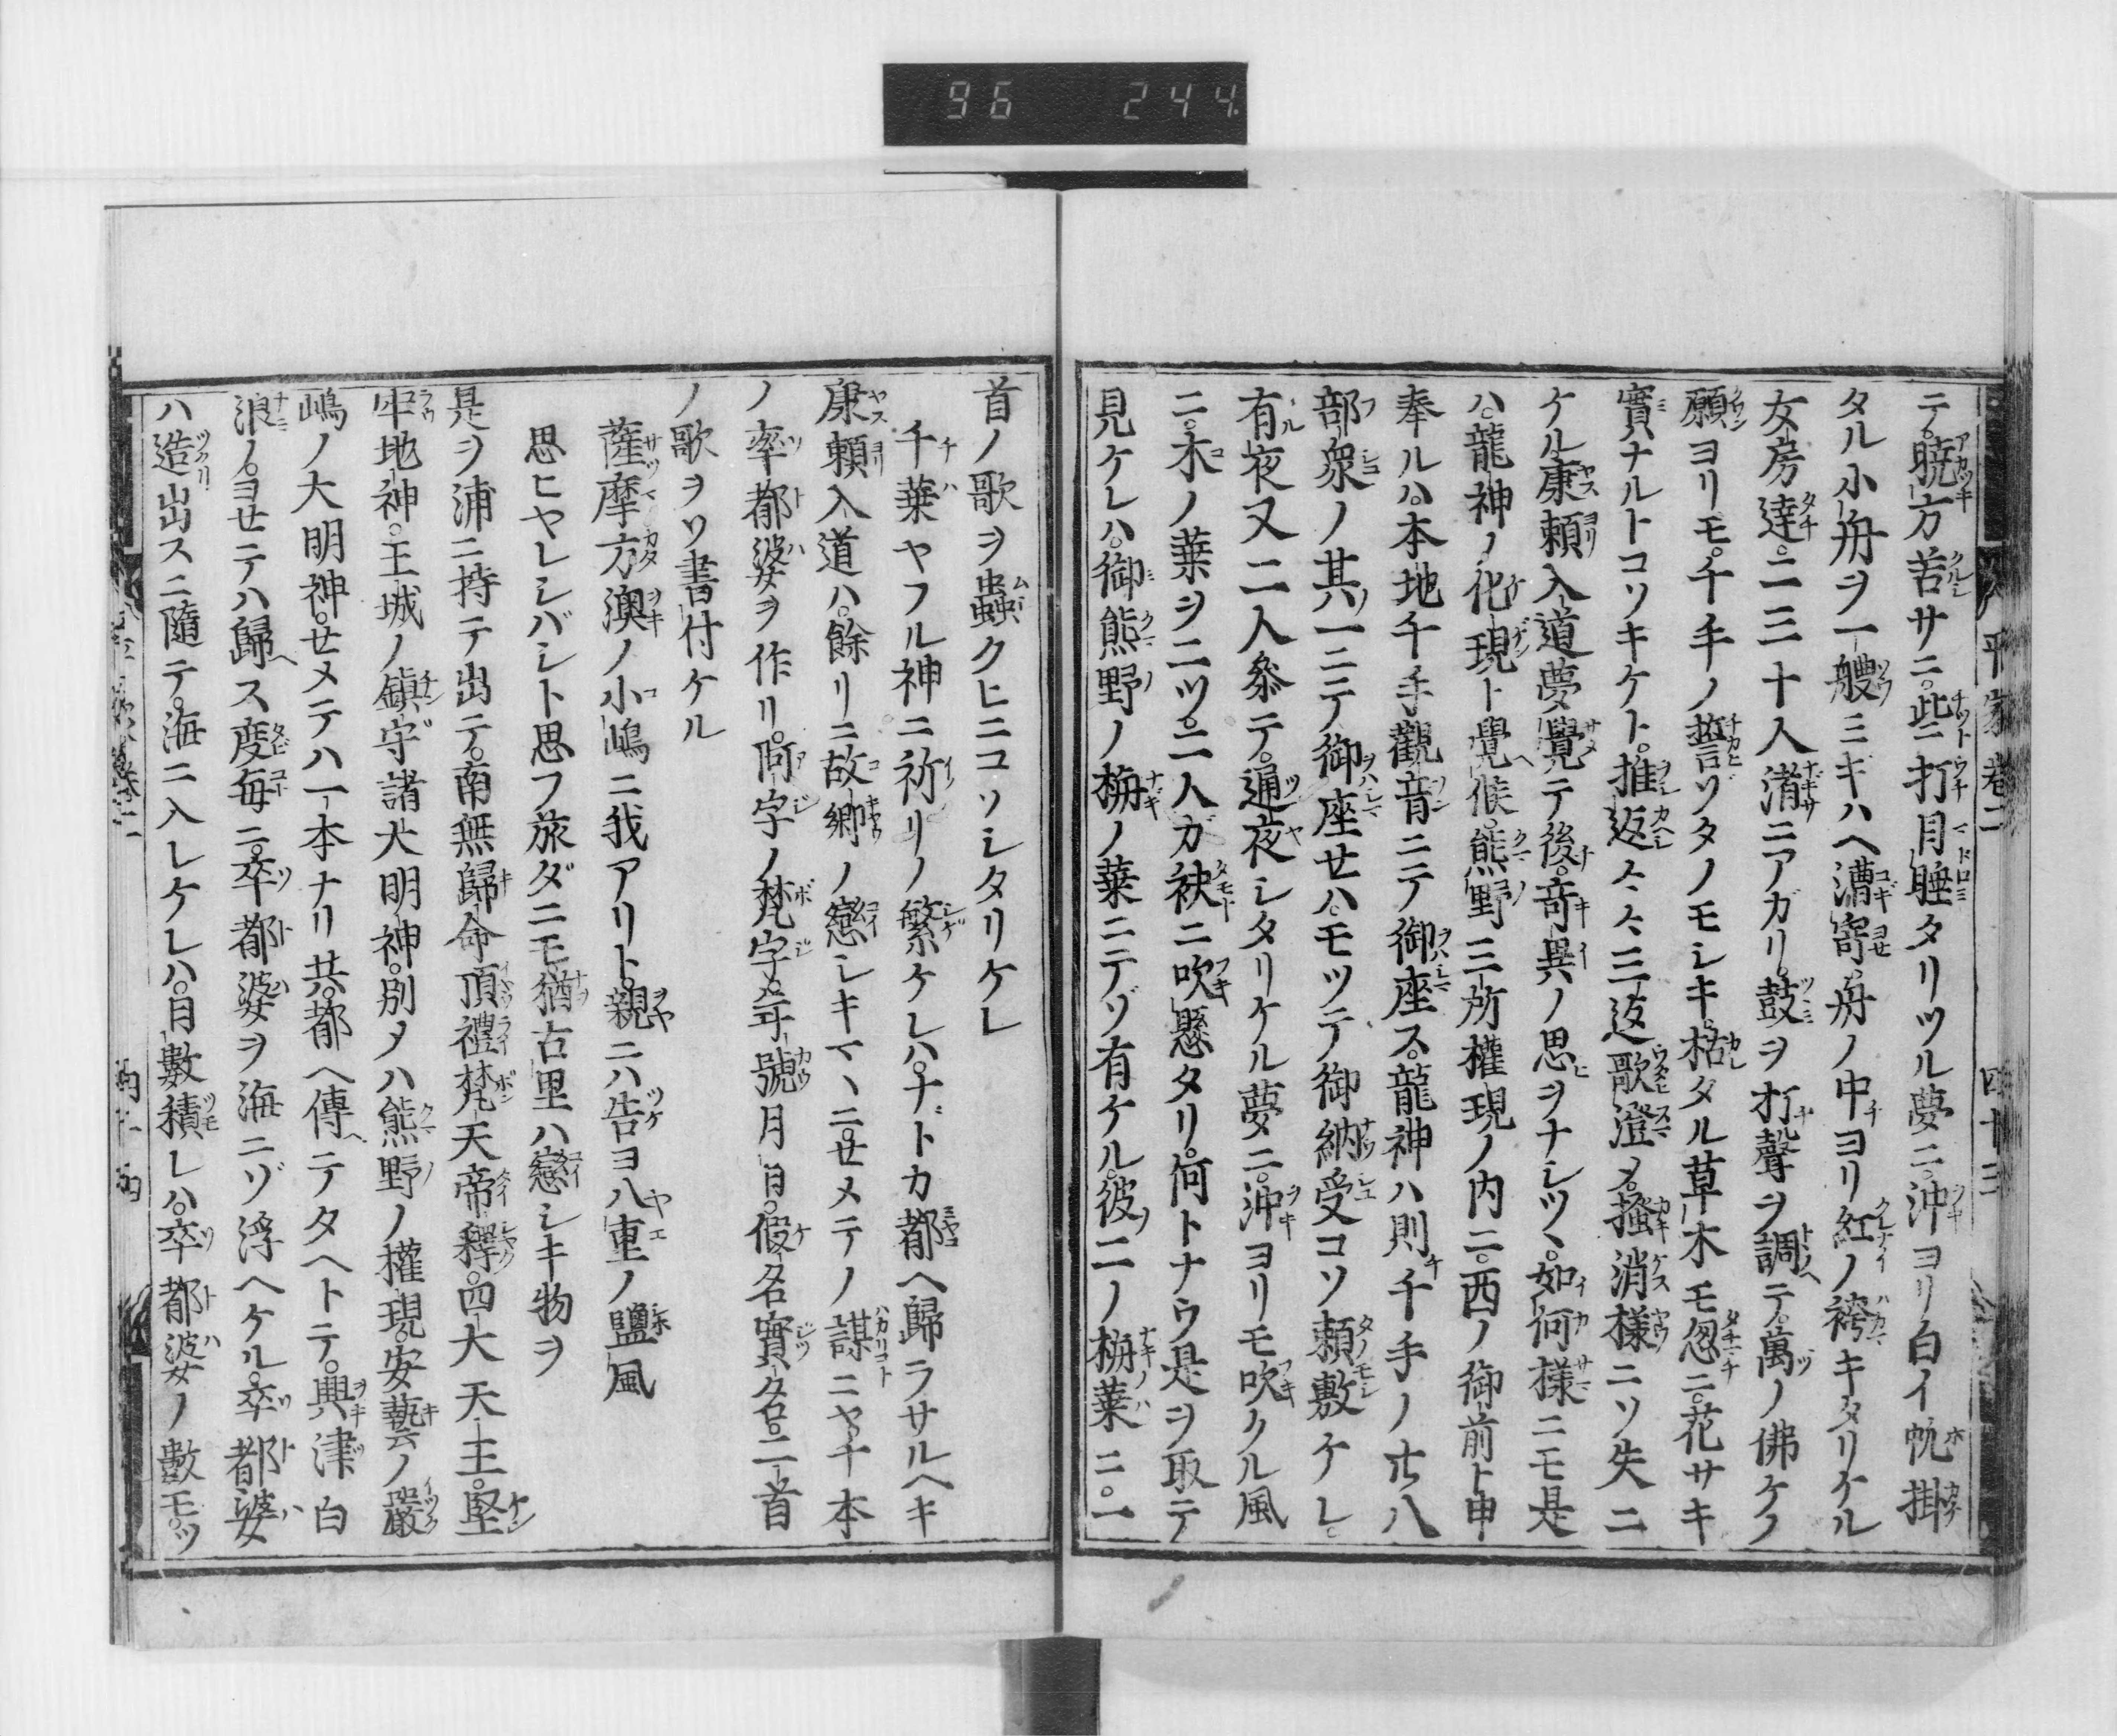 96 244
平家巻二 四十三
テ。暁方苦サニ。些打目睡タリツル夢ニ。沖ヨリ白イ帆掛
タル小舟ヲ一艘ミギハヘ漕寄。舟ノ中ヨリ紅ノ袴キタリケル
女房達。二三十人渚ニアガリ。鼓ヲ打聲ヲ調テ。萬ノ佛ケノ
願ヨリモ。千手ノ誓ソタノモシキ。枯タル草木モ忽ニ。花サキ
實ナルトコソキケト。推返々々三返歌澄メ。掻消様ニソ失ニ
ケル。康頼入道夢覺テ後。奇異ノ思ヲナシツヽ。如何様ニモ是
ハ。龍神ノ化現ト覺候。熊野三所權現ノ内ニ。西ノ御前ト申
奉ルハ。本地千手觀音ニテ御座ス。龍神ハ則千手ノ廿八
部衆ノ其一ニテ御座セハ。モツテ御納受コソ頼敷ケレ。
有夜又二人參テ。通夜シタリケル夢ニ。沖ヨリモ吹クル風
ニ。木ノ葉ヲ二ツ。二人ガ袂ニ吹懸タリ。何トナウ是ヲ取テ
見ケレハ。御熊野ノ梛ノ葉ニテゾ有ケル。彼二ノ梛葉ニ。一
首ノ歌ヲ蟲クヒニコソシタリケレ
千葉ヤフル神ニ祈リノ繁ケレハ。ナトカ都ヘ歸ラサルヘキ
康頼入道ハ。餘リニ故郷ノ戀シキマヽニ。セメテノ謀ニヤ。千本
ノ率都婆ヲ作リ。阿字ノ梵字。年號月日。假名實名。二首
ノ歌ヲソ書付ケル
薩摩方澳ノ小嶋ニ我アリト。親ニハ告ヨ八重ノ鹽風
思ヒヤレシバシト思フ旅ダニモ。猶古里ハ戀シキ物ヲ
是ヲ浦ニ持テ出テ。南無歸命頂禮梵天帝釋。四大天王。堅
牢地神。王城ノ鎮守諸大明神。別メハ熊野ノ權現。安藝ノ嚴
嶋ノ大明神。セメテハ一本ナリ共。都ヘ傳テタヘトテ。興津白
浪ノ。ヨセテハ歸ス度毎ニ。卒都婆ヲ海ニゾ浮ヘケル。卒都婆
ハ造出スニ隨テ。海ニ入レケレハ。日數積レハ。卒都婆ノ數モ。ツ